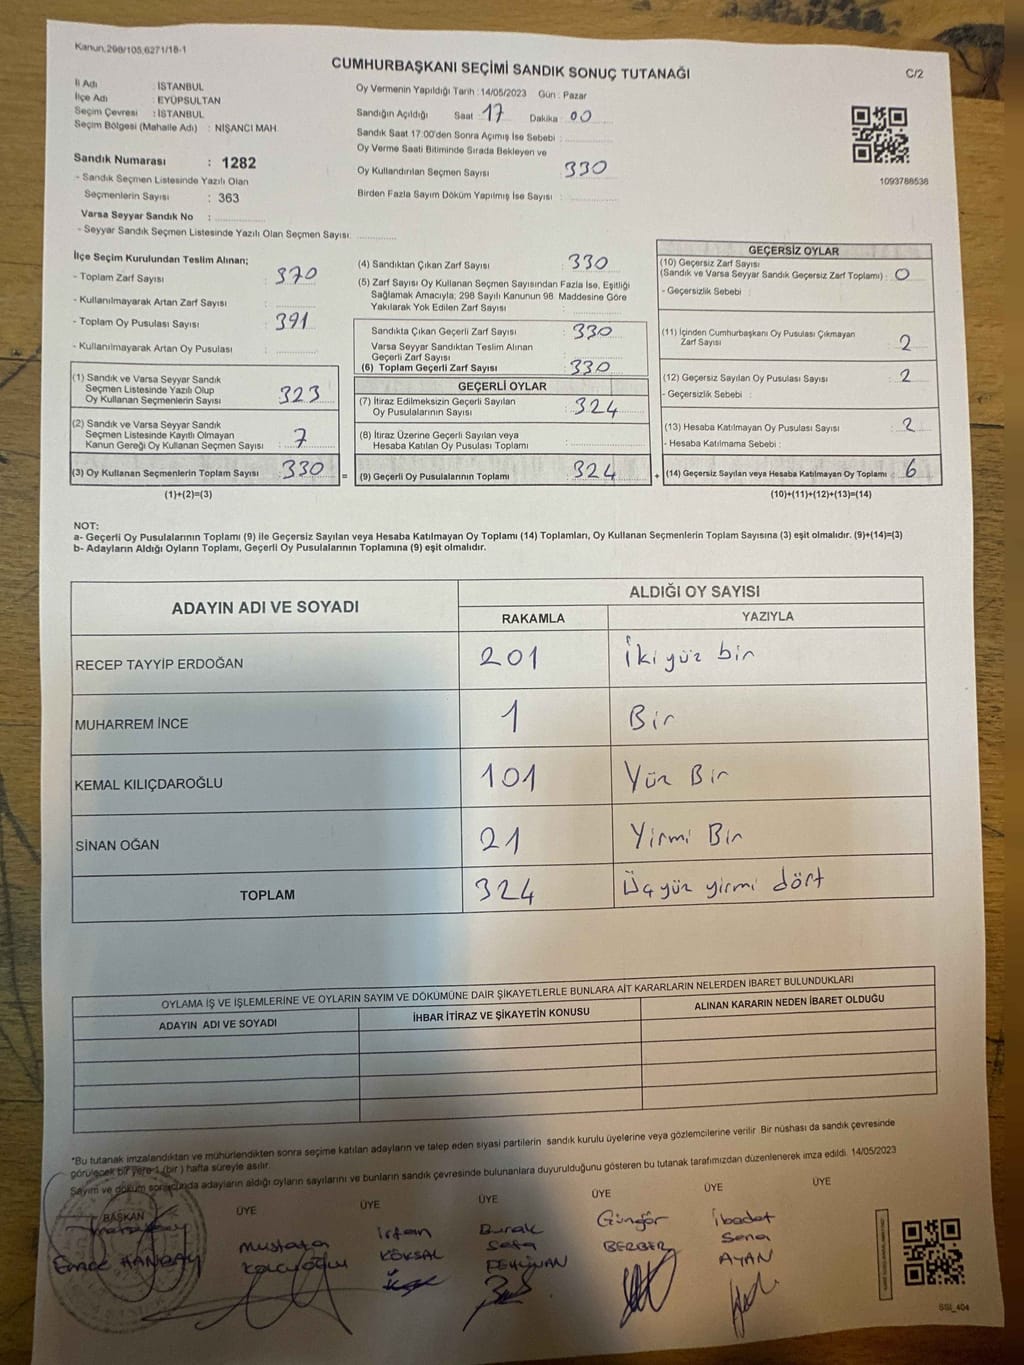 Kanun,298/105,6271/18-1
CUMHURBAŞKANI SEÇİMİ SANDIK SONUÇ TUTANAĞI
C/2
İl Adı : İSTANBUL
İlçe Adı : EYÜPSULTAN
Seçim Çevresi : İSTANBUL
Seçim Bölgesi (Mahalle Adı) : NİŞANCI MAH.
Oy Vermenin Yapıldığı Tarih : 14/05/2023 Gün : Pazar
Sandığın Açıldığı Saat 17 Dakika 00
Sandık Saat 17:00'den Sonra Açımış İse Sebebi :
Oy Verme Saati Bitiminde Sırada Bekleyen ve
Oy Kullandırılan Seçmen Sayısı : 330
Birden Fazla Sayım Döküm Yapılmış İse Sayısı :
1093788538
Sandık Numarası : 1282
- Sandık Seçmen Listesinde Yazılı Olan
Seçmenlerin Sayısı : 363
Varsa Seyyar Sandık No :
- Seyyar Sandık Seçmen Listesinde Yazılı Olan Seçmen Sayısı:
İlçe Seçim Kurulundan Teslim Alınan;
- Toplam Zarf Sayısı : 370
- Kullanılmayarak Artan Zarf Sayısı :
- Toplam Oy Pusulası Sayısı : 391
- Kullanılmayarak Artan Oy Pusulası :
(1) Sandık ve Varsa Seyyar Sandık
Seçmen Listesinde Yazılı Olup
Oy Kullanan Seçmenlerin Sayısı : 323
(2) Sandık ve Varsa Seyyar Sandık
Seçmen Listesinde Kayıtlı Olmayan
Kanun Gereği Oy Kullanan Seçmen Sayısı : 7
(3) Oy Kullanan Seçmenlerin Toplam Sayısı : 330 =
(1)+(2)=(3)
(4) Sandıktan Çıkan Zarf Sayısı : 330
(5) Zarf Sayısı Oy Kullanan Seçmen Sayısından Fazla İse, Eşitliği
Sağlamak Amacıyla; 298 Sayılı Kanunun 98. Maddesine Göre
Yakılarak Yok Edilen Zarf Sayısı :
Sandıkta Çıkan Geçerli Zarf Sayısı : 330
Varsa Seyyar Sandıktan Teslim Alınan
Geçerli Zarf Sayısı :
(6) Toplam Geçerli Zarf Sayısı : 330
GEÇERLİ OYLAR
(7) İtiraz Edilmeksizin Geçerli Sayılan
Oy Pusulalarının Sayısı : 324
(8) İtiraz Üzerine Geçerli Sayılan veya
Hesaba Katılan Oy Pusulası Toplamı :
(9) Geçerli Oy Pusulalarının Toplamı : 324 +
GEÇERSİZ OYLAR
(10) Geçersiz Zarf Sayısı
(Sandık ve Varsa Seyyar Sandık Geçersiz Zarf Toplamı) : 0
- Geçersizlik Sebebi :
(11) İçinden Cumhurbaşkanı Oy Pusulası Çıkmayan
Zarf Sayısı : 2
(12) Geçersiz Sayılan Oy Pusulası Sayısı : 2
- Geçersizlik Sebebi :
(13) Hesaba Katılmayan Oy Pusulası Sayısı : 2
- Hesaba Katılmama Sebebi :
(14) Geçersiz Sayılan veya Hesaba Katılmayan Oy Toplamı : 6
(10)+(11)+(12)+(13)=(14)
NOT:
a- Geçerli Oy Pusulalarının Toplamı (9) ile Geçersiz Sayılan veya Hesaba Katılmayan Oy Toplamı (14) Toplamları, Oy Kullanan Seçmenlerin Toplam Sayısına (3) eşit olmalıdır. (9)+(14)=(3)
b- Adayların Aldığı Oyların Toplamı, Geçerli Oy Pusulalarının Toplamına (9) eşit olmalıdır.
ADAYIN ADI VE SOYADI
ALDIĞI OY SAYISI
RAKAMLA YAZIYLA
RECEP TAYYİP ERDOĞAN 201 İki yüz bir
MUHARREM İNCE 1 Bir
KEMAL KILIÇDAROĞLU 101 Yüz Bir
SİNAN OĞAN 21 Yirmi Bir
TOPLAM 324 Üçyüz yirmi dört
OYLAMA İŞ VE İŞLEMLERİNE VE OYLARIN SAYIM VE DÖKÜMÜNE DAİR ŞİKAYETLERLE BUNLARA AİT KARARLARIN NELERDEN İBARET BULUNDUKLARI
ADAYIN ADI VE SOYADI İHBAR İTİRAZ VE ŞİKAYETİN KONUSU ALINAN KARARIN NEDEN İBARET OLDUĞU
*Bu tutanak imzalandıktan ve mühürlendikten sonra seçime katılan adayların ve talep eden siyasi partilerin sandık kurulu üyelerine veya gözlemcilerine verilir. Bir nüshası da sandık çevresinde
görülecek bir yere 1 (bir) hafta süreyle asılır.
Sayım ve döküm sonucunda adayların aldığı oyların sayılarını ve bunların sandık çevresinde bulunanlara duyurulduğunu gösteren bu tutanak tarafımızdan düzenlenerek imza edildi. 14/05/2023
BAŞKAN ÜYE ÜYE ÜYE ÜYE ÜYE ÜYE
Mustafa İrfan Burak Güngör İbadet
KÖKSAL Sefa BERBER Sena
AYAN
SSI_404